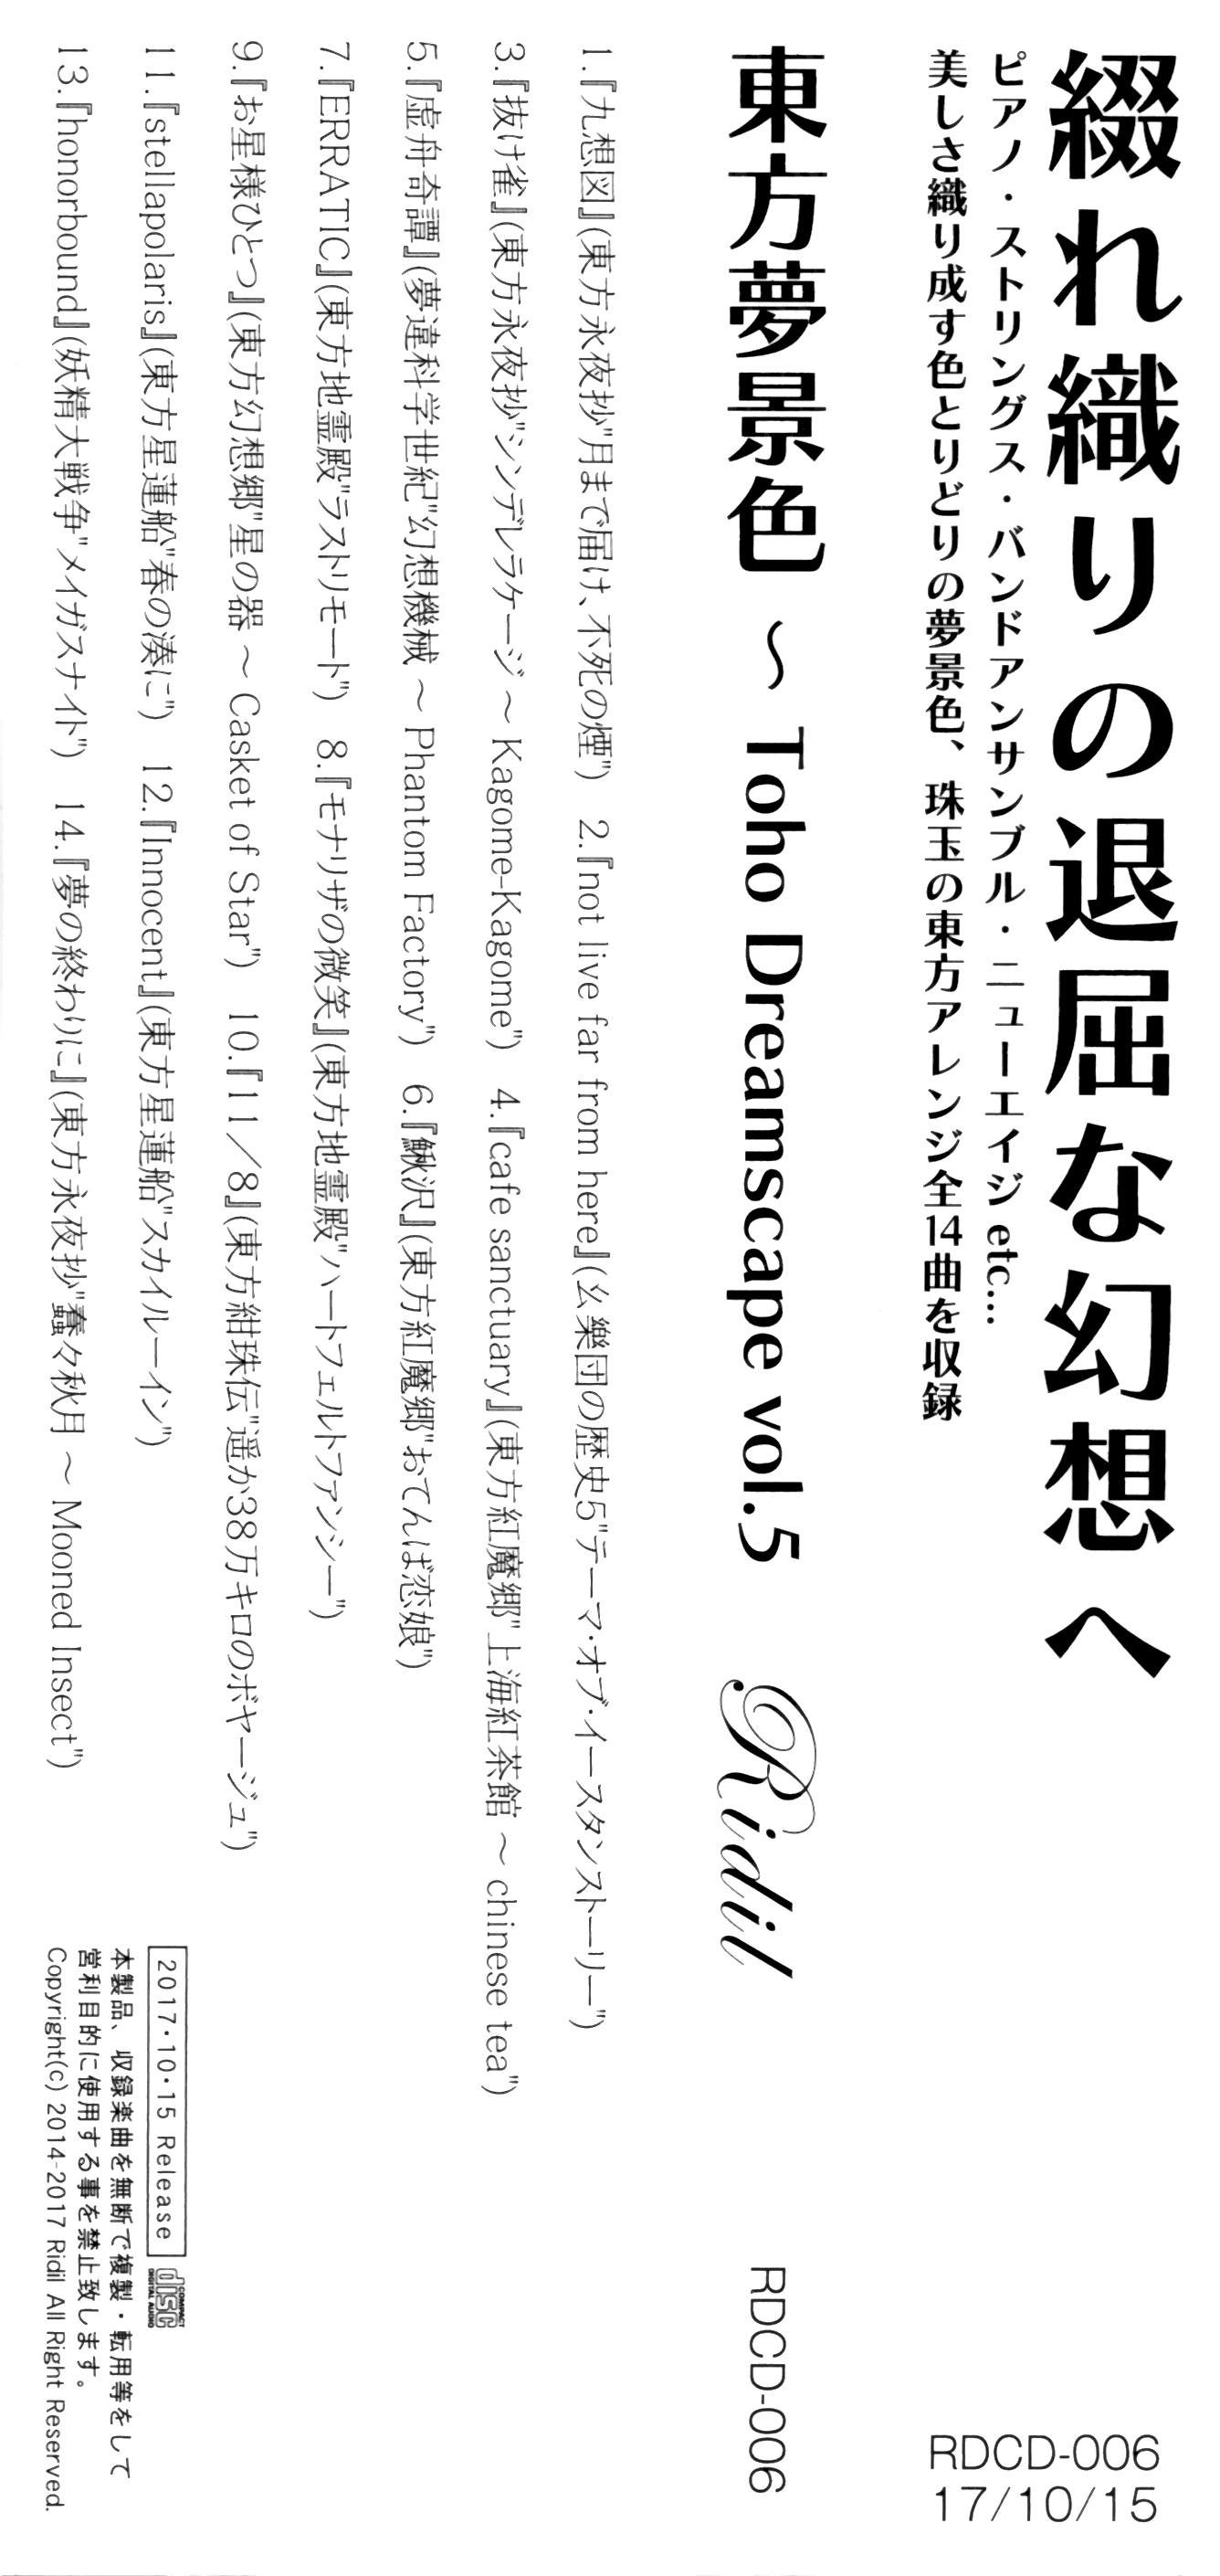 綴れ織りの退屈な幻想へ
ピアノ・ストリングス・バンドアンサンブル・ニューエイジ etc...
美しさ織り成す色とりどりの夢景色、珠玉の東方アレンジ全14曲を収録
RDCD-006
17/10/15
東方夢景色 ～ Toho Dreamscape vol.5 Ridil RDCD-006
1.『九想図』(東方永夜抄"月まで届け、不死の煙") 2.『not live far from here』(幺樂団の歴史5"テーマ・オブ・イースタンストーリー")
3.『抜け雀』(東方永夜抄"シンデレラケージ ～ Kagome-Kagome") 4.『cafe sanctuary』(東方紅魔郷"上海紅茶館 ～ chinese tea")
5.『虚舟奇譚』(夢違科学世紀"幻想機械 ～ Phantom Factory") 6.『鰍沢』(東方紅魔郷"おてんば恋娘")
7.『ERRATIC』(東方地霊殿"ラストリモート") 8.『モナリザの微笑』(東方地霊殿"ハートフェルトファンシー")
9.『お星様ひとつ』(東方幻想郷"星の器 ～ Casket of Star") 10.『11／8』(東方紺珠伝"遥か38万キロのボヤージュ")
11.『stellapolaris』(東方星蓮船"春の湊に") 12.『Innocent』(東方星蓮船"スカイルーイン")
13.『honorbound』(妖精大戦争"メイガスナイト") 14.『夢の終わりに』(東方永夜抄"蠢々秋月 ～ Mooned Insect")
2017・10・15 Release
COMPACT disc DIGITAL AUDIO
本製品、収録楽曲を無断で複製・転用等をして
営利目的に使用する事を禁止致します。
Copyright(c) 2014-2017 Ridil All Right Reserved.